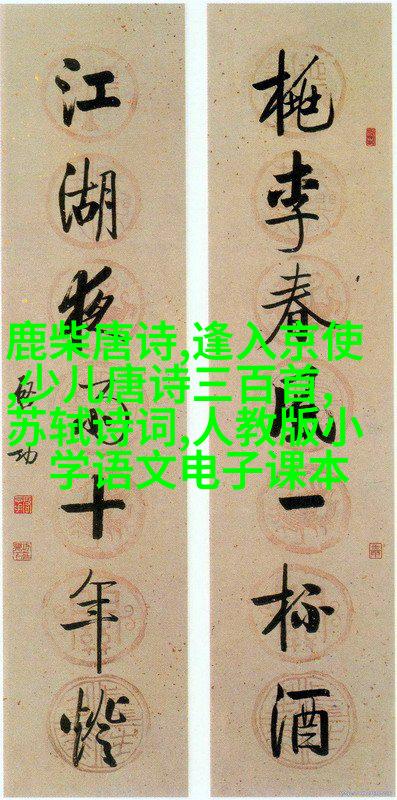 桃李春风一杯酒
江湖夜雨十年灯
启功
鹿柴唐诗,逢入京使
,少儿唐诗三百首,
苏轼诗词,人教版小
学语文电子课本